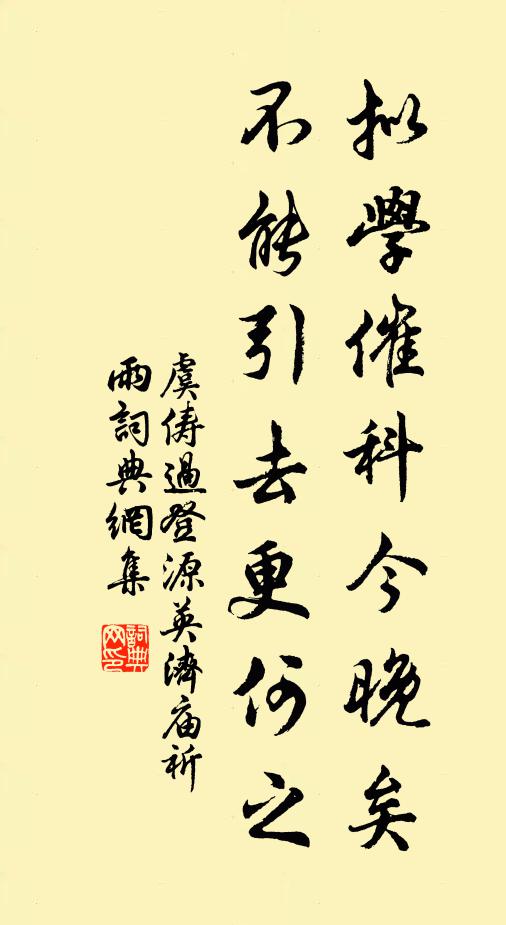 拟學催科今晚矣
不能引去更何之
虞儔過登源英濟庙祈
雨詞典網集
詞典
网印